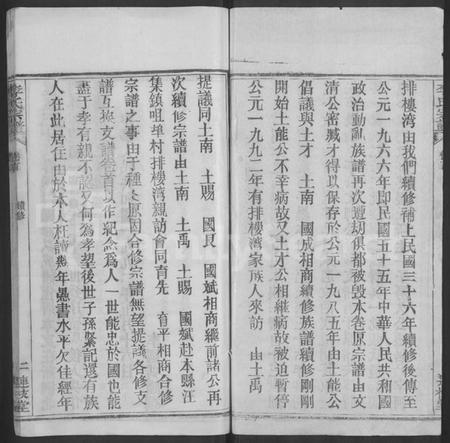 排樓湾由我們續修補上民國三十六年續修後傳至
公元一九六六年即民國五十五年中華人民共和國
政治動亂族譜再次遭刼俱都被毁本卷原宗譜由文
清公密藏才得以保存於公元一九八五年由土能公
倡議與土才　土南　國成相商續修族譜續修剛剛
開始土能公不幸病故又土才公相継病故被迫暫停
公元一九九二年有排樓湾家族人來訪　由土禹
提議同土南　土賜　國艮　國斌相商繼前諸公再
次續修宗譜由土南　土禹　土賜　國斌赴本縣汪
集鎮咀单村排樓湾親訪會同育先　育平相商合修
宗譜之事由于種々原因合修宗譜無望提議各修支
譜互換支譜卷首以作紀念爲人一世能忠於國也能
盡于孝有親不認又何為孝望後世子孫緊記還有族
人在此居住由於本人枉讀幾年愚書水平欠佳經年
李氏宗譜
卷首
續修
二